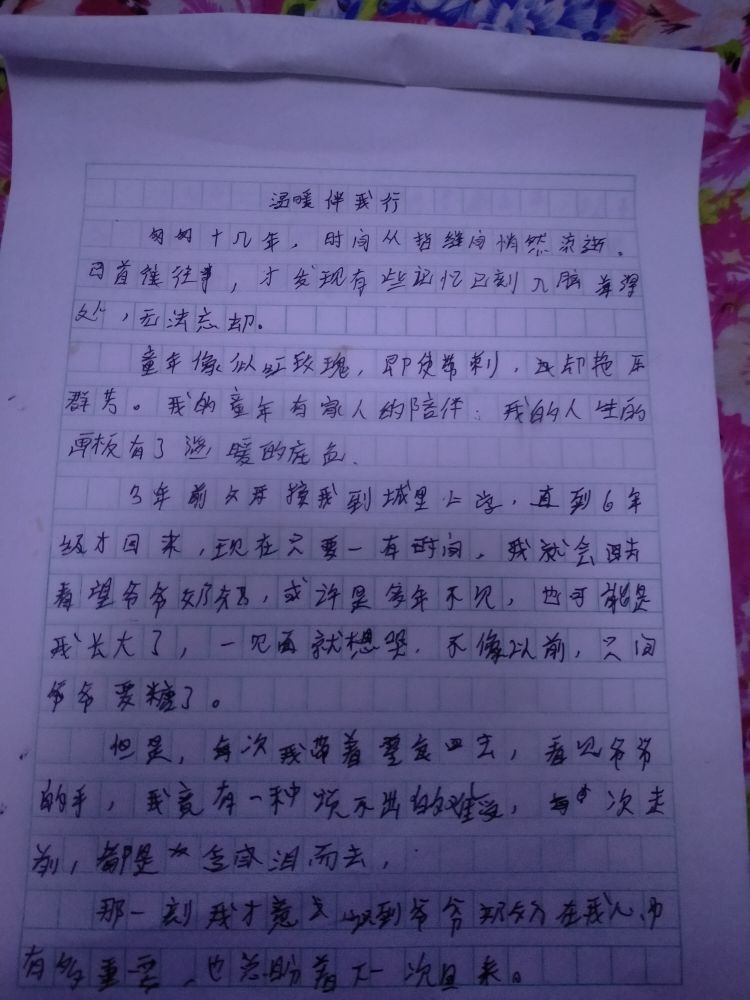 温暖伴我行
匆匆十几年，时间从指缝间悄然流逝。
回首往往事，才发现有些记忆已刻入脑海深
处，无法忘却。
童年像似红玫瑰，即使带刺，也却艳压
群芳。我的童年有家人的陪伴；我的人生的
画板有了温暖的底色.
3年前父母接我到城里上学，直到6年
级才回来，现在只要一有时间，我就会回去
看望爷爷奶奶，或许是多年不见，也可能是
我长大了，一见面就想哭.不像以前，只问
爷爷要糖了。
但是，每次我带着回去，看见爷爷
的手，我竟有一种说不出的难受，每次走
前，都是含泪而去，
那一刻我才意识到爷爷奶奶在我心中
有多重要，也总盼着下一次回来。